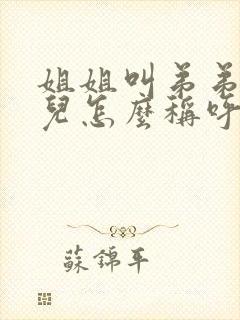 姐姐叫弟弟
兒怎麼稱呼
蘇錦年